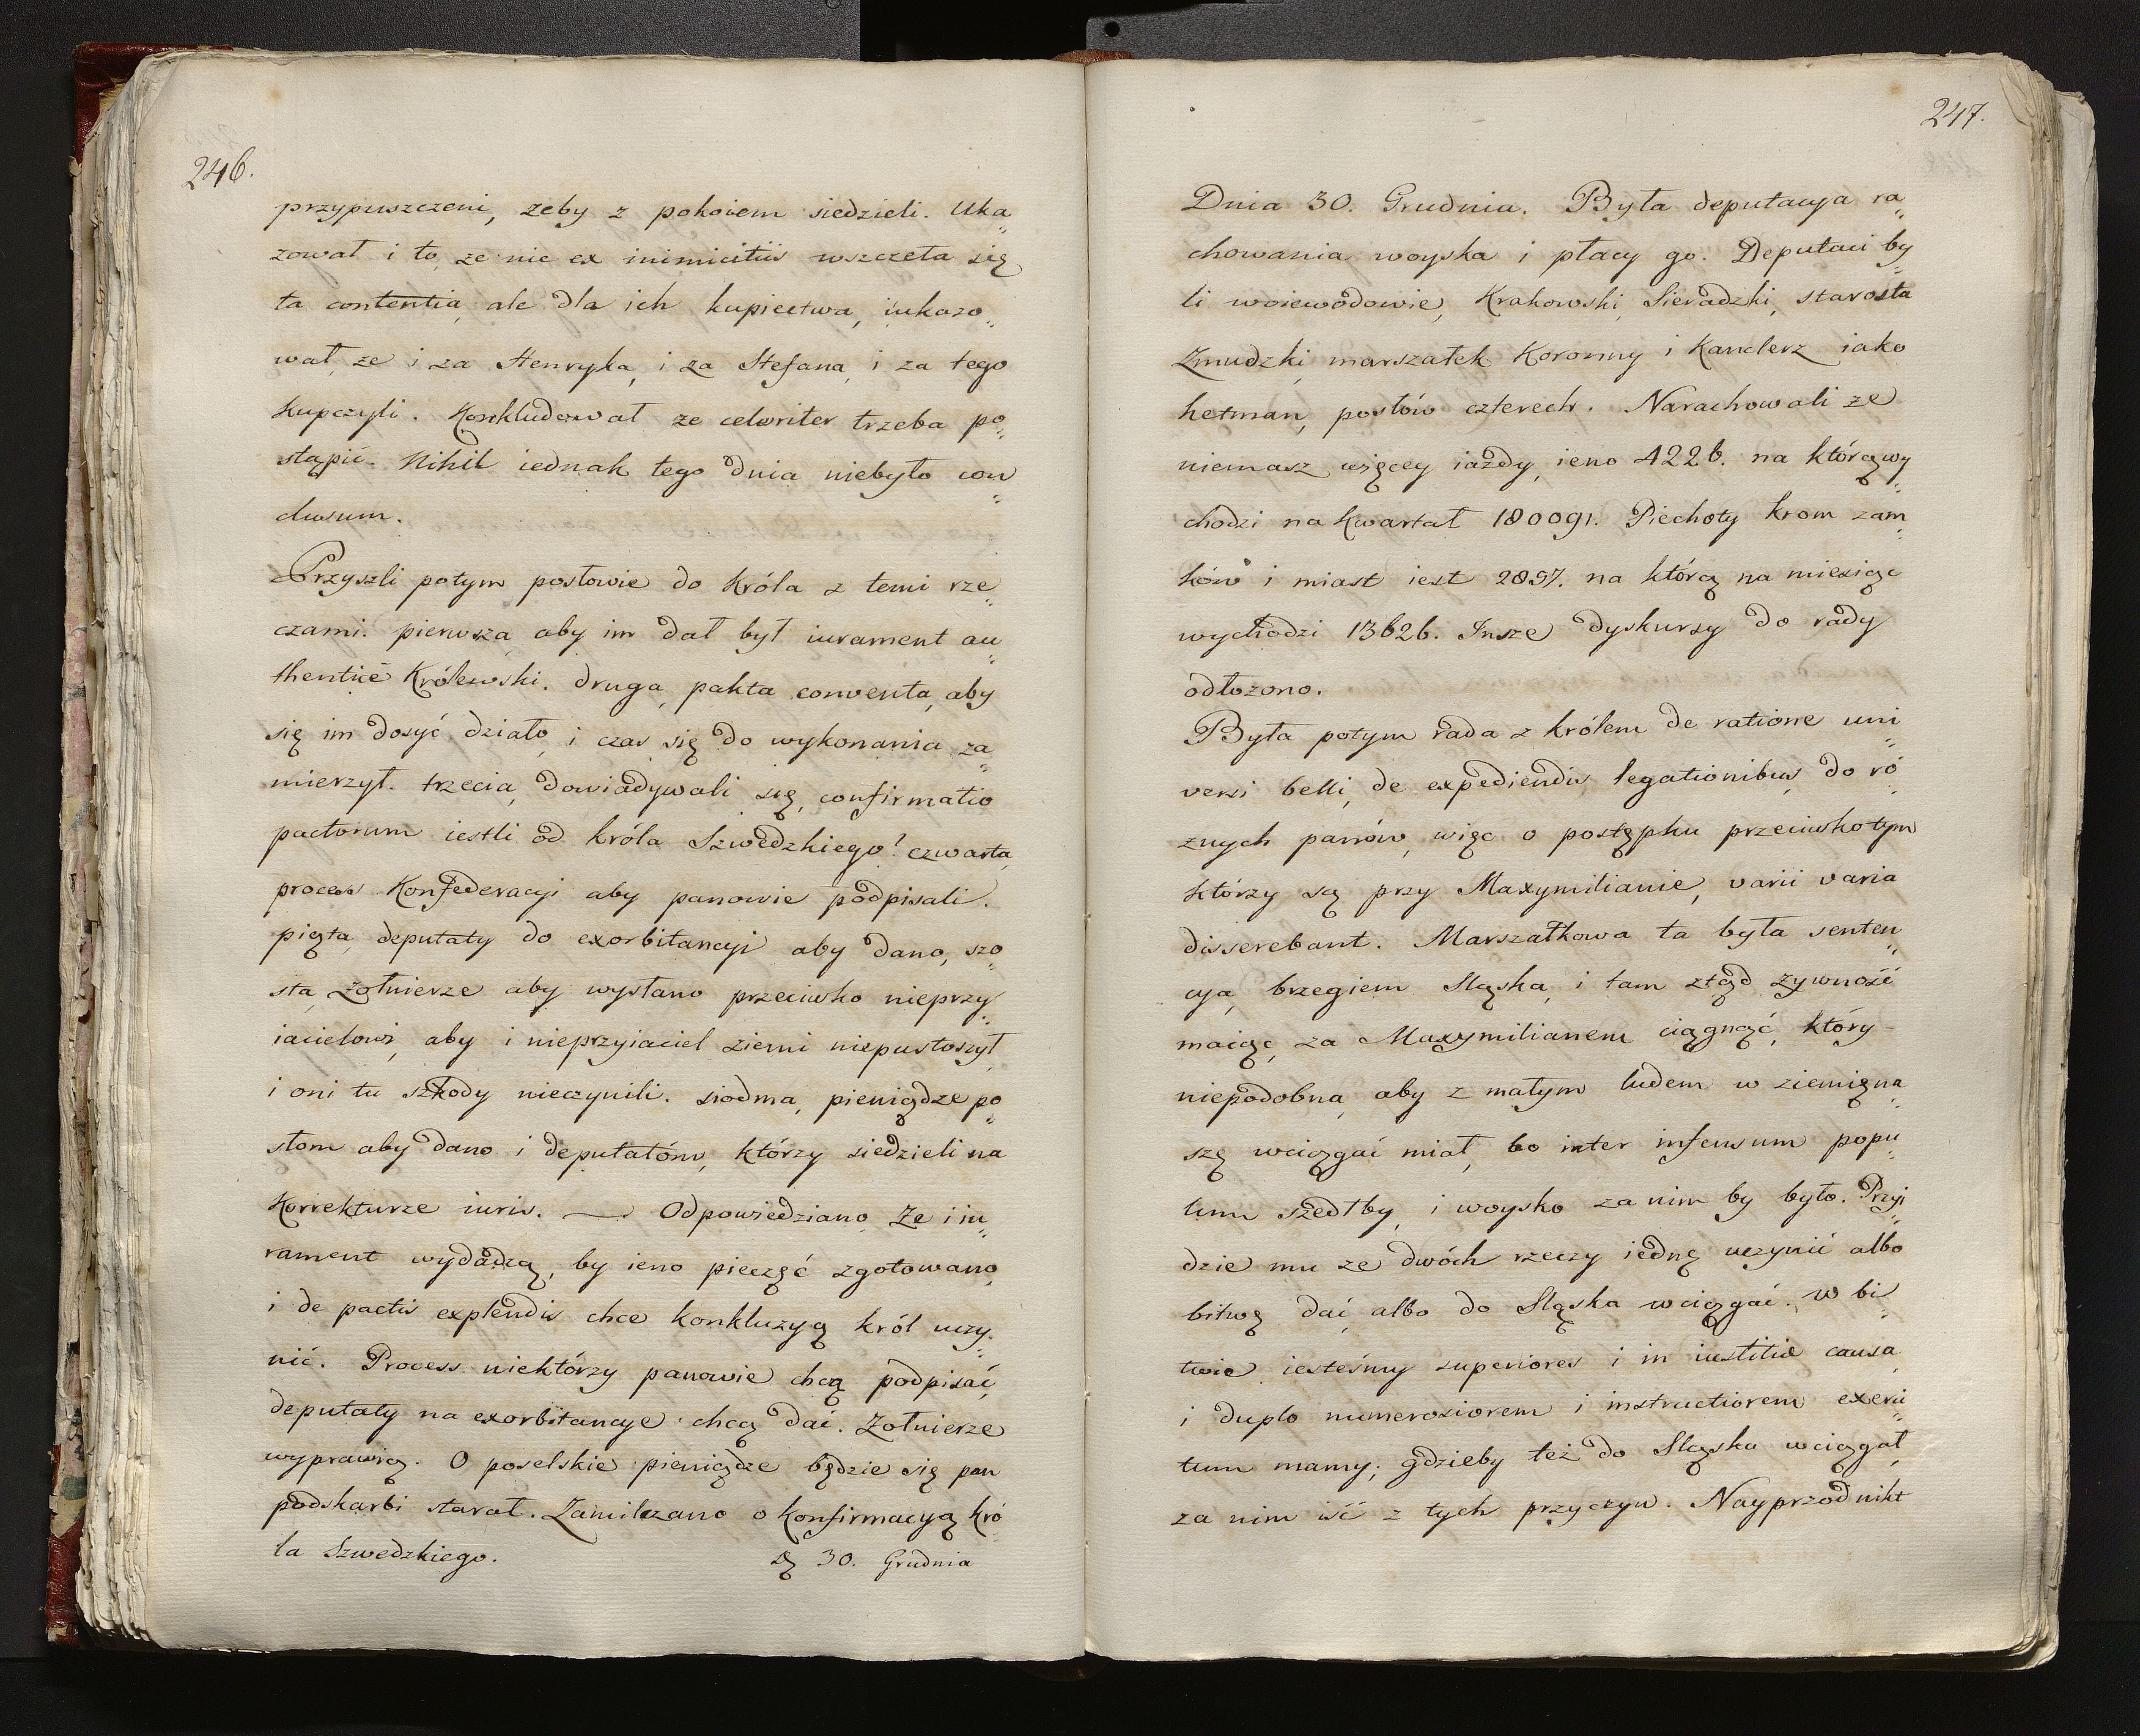 246.
przypuszczeni, żeby z pokoiem siedzieli. Uka„
zował i to, ze nie ex inimicitiis wszczęła się
ta contentia, ale dla ich kupiectwa, iukazo„
wał, ze i za Henryka, i za Stefana, i za tego
kupczyli. Konkludował ze celeriter trzeba po„
stąpić. Nihil iednak tego dnia niebyło con„
clusum.
Przyszli potym posłowie do Króla z temi rze„
czami. pierwsza, aby im dał był iurament au„
thenticè Królewski. druga, pakta conventa, aby
się im dosyć działo, i czas się do wykonania za„
mierzył. trzecia, dowiadywali się, confirmatio
pactorum iestli od króla Szwedzkiego? czwarta,
process Konfederacyi aby panowie podpisali.
piąta, deputaty do exorbitancyi aby dano, szo„
sta, żołnierze aby wysłano przeciwko nieprzy„
iacielowi, aby i nieprzyiaciel ziemi niepustoszył,
i oni tu szkody nieczynili. siodma, pieniądze po„
słom aby dano i deputatóm, którzy siedzieli na
Korrekturze iuris. — Odpowiedziano, Ze i iu„
rament wydadzą, by ieno pieczęć zgotowano,
i de pactis explendis chce konkluzyą król uczy„
nić. Process niektórzy panowie chcą podpisać,
deputaty na exorbitancye chcą dać. Żołnierze
wyprawią. O poselskie pieniądze będzie się pan
podskarbi starał. Zamilczano o konfirmacyą kró„
la Szwedzkiego.
30. Grudnia
247.
Dnia 30. Grudnia. Była deputacya ra„
chowania woyska i płacy go. Deputaci by„
li woiewodowie, Krakowski, Sieradzki, starosta
Zmudzki, marszałek Koronny i Kanclerz iako
hetman, posłów czterech. Narachowali ze
niemasz więcey iazdy, ieno 4226. na którą wy„
chodzi na kwartał 180091. Piechoty krom zam„
ków i miast iest 2897. na którą na miesiąc
wychodzi 13626. Insze dyskursy do rady
odłozono.
Była potym rada z królem de ratione uni„
versi belli, de expediendis legationibus do ró„
znych panów, więc o postępku przeciwko tym
którzy są przy Maxymilianie, varii varia
disserebant. Marszałkowa ta była senten„
cya, brzegiem Sląska, i tam ztąd zywność
maiąc, za Maxymilianem ciągnąć, który
niepodobna, aby z małym ludem w ziemię na„
szę wciągać miał, bo inter infensum popu„
lum szedłby, i woysko za nim by było. Przyi„
dzie mu ze dwóch rzeczy iednę uczynić albo
bitwę dać, albo do Sląska wciągać. w bi„
twie iesteśmy superiores i in iustitiæ causa,
i duplo numerosiorem i instructiorem exerci„
tum mamy; gdzieby też do Sląska wciągał,
za nim iść z tych przyczyn. Nayprzod nikt